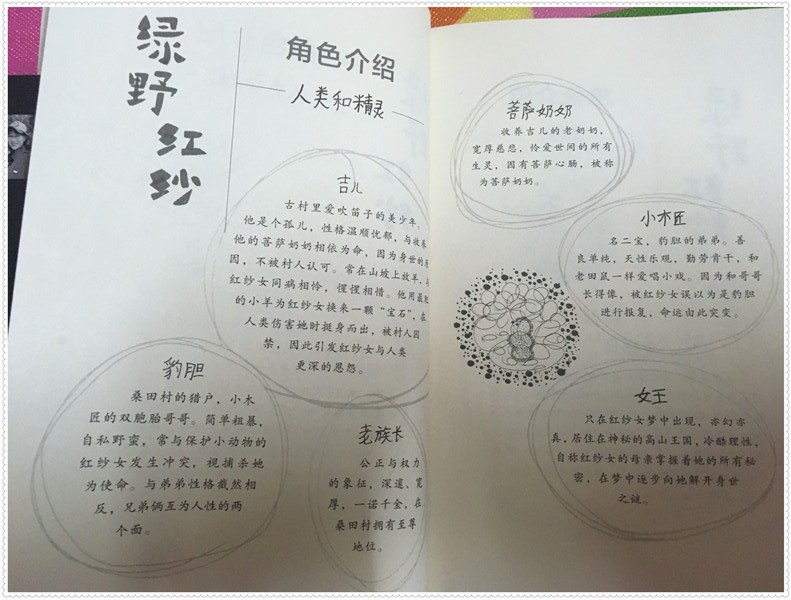 绿野红纱
角色介绍
人类和精灵
吉儿
古村里爱吹笛子的美少年。
他是个孤儿，性格温顺忧郁，与收养
他的菩萨奶奶相依为命，因为身世的原
因，不被村人认可。常在山坡上放羊，与
红纱女同病相怜，惺惺相惜。他用最
的小羊为红纱女换来一颗“宝石”，在
人类伤害她时挺身而出，被村人囚
禁，因此引发红纱女与人类
更深的恩怨。
豹胆
桑田村的猎户，小木
匠的双胞胎哥哥。简单粗暴，
自私野蛮，常与保护小动物的
红纱女发生冲突，视捕杀她
为使命。与弟弟性格截然相
反，兄弟俩互为人性的两
个面。
老族长
公正与权力
的象征，深邃、宽
厚，一诺千金，在
桑田村拥有至尊
地位。
菩萨奶奶
收养吉儿的老奶奶，
宽厚慈悲，怜爱世间的所有
生灵，因有菩萨心肠，被称
为菩萨奶奶。
小木匠
名二宝，豹胆的弟弟。善
良单纯，天性乐观，勤劳肯干，和
老田鼠一样爱唱小戏。因为和哥哥
长得像，被红纱女误以为是豹胆
进行报复，命运由此突变。
女王
只在红纱女梦中出现，亦幻亦
真，居住在神秘的高山王国，冷酷理性，
自称红纱女的母亲掌握着她的所有秘
密，在梦中逐步向她解开身世
之谜。